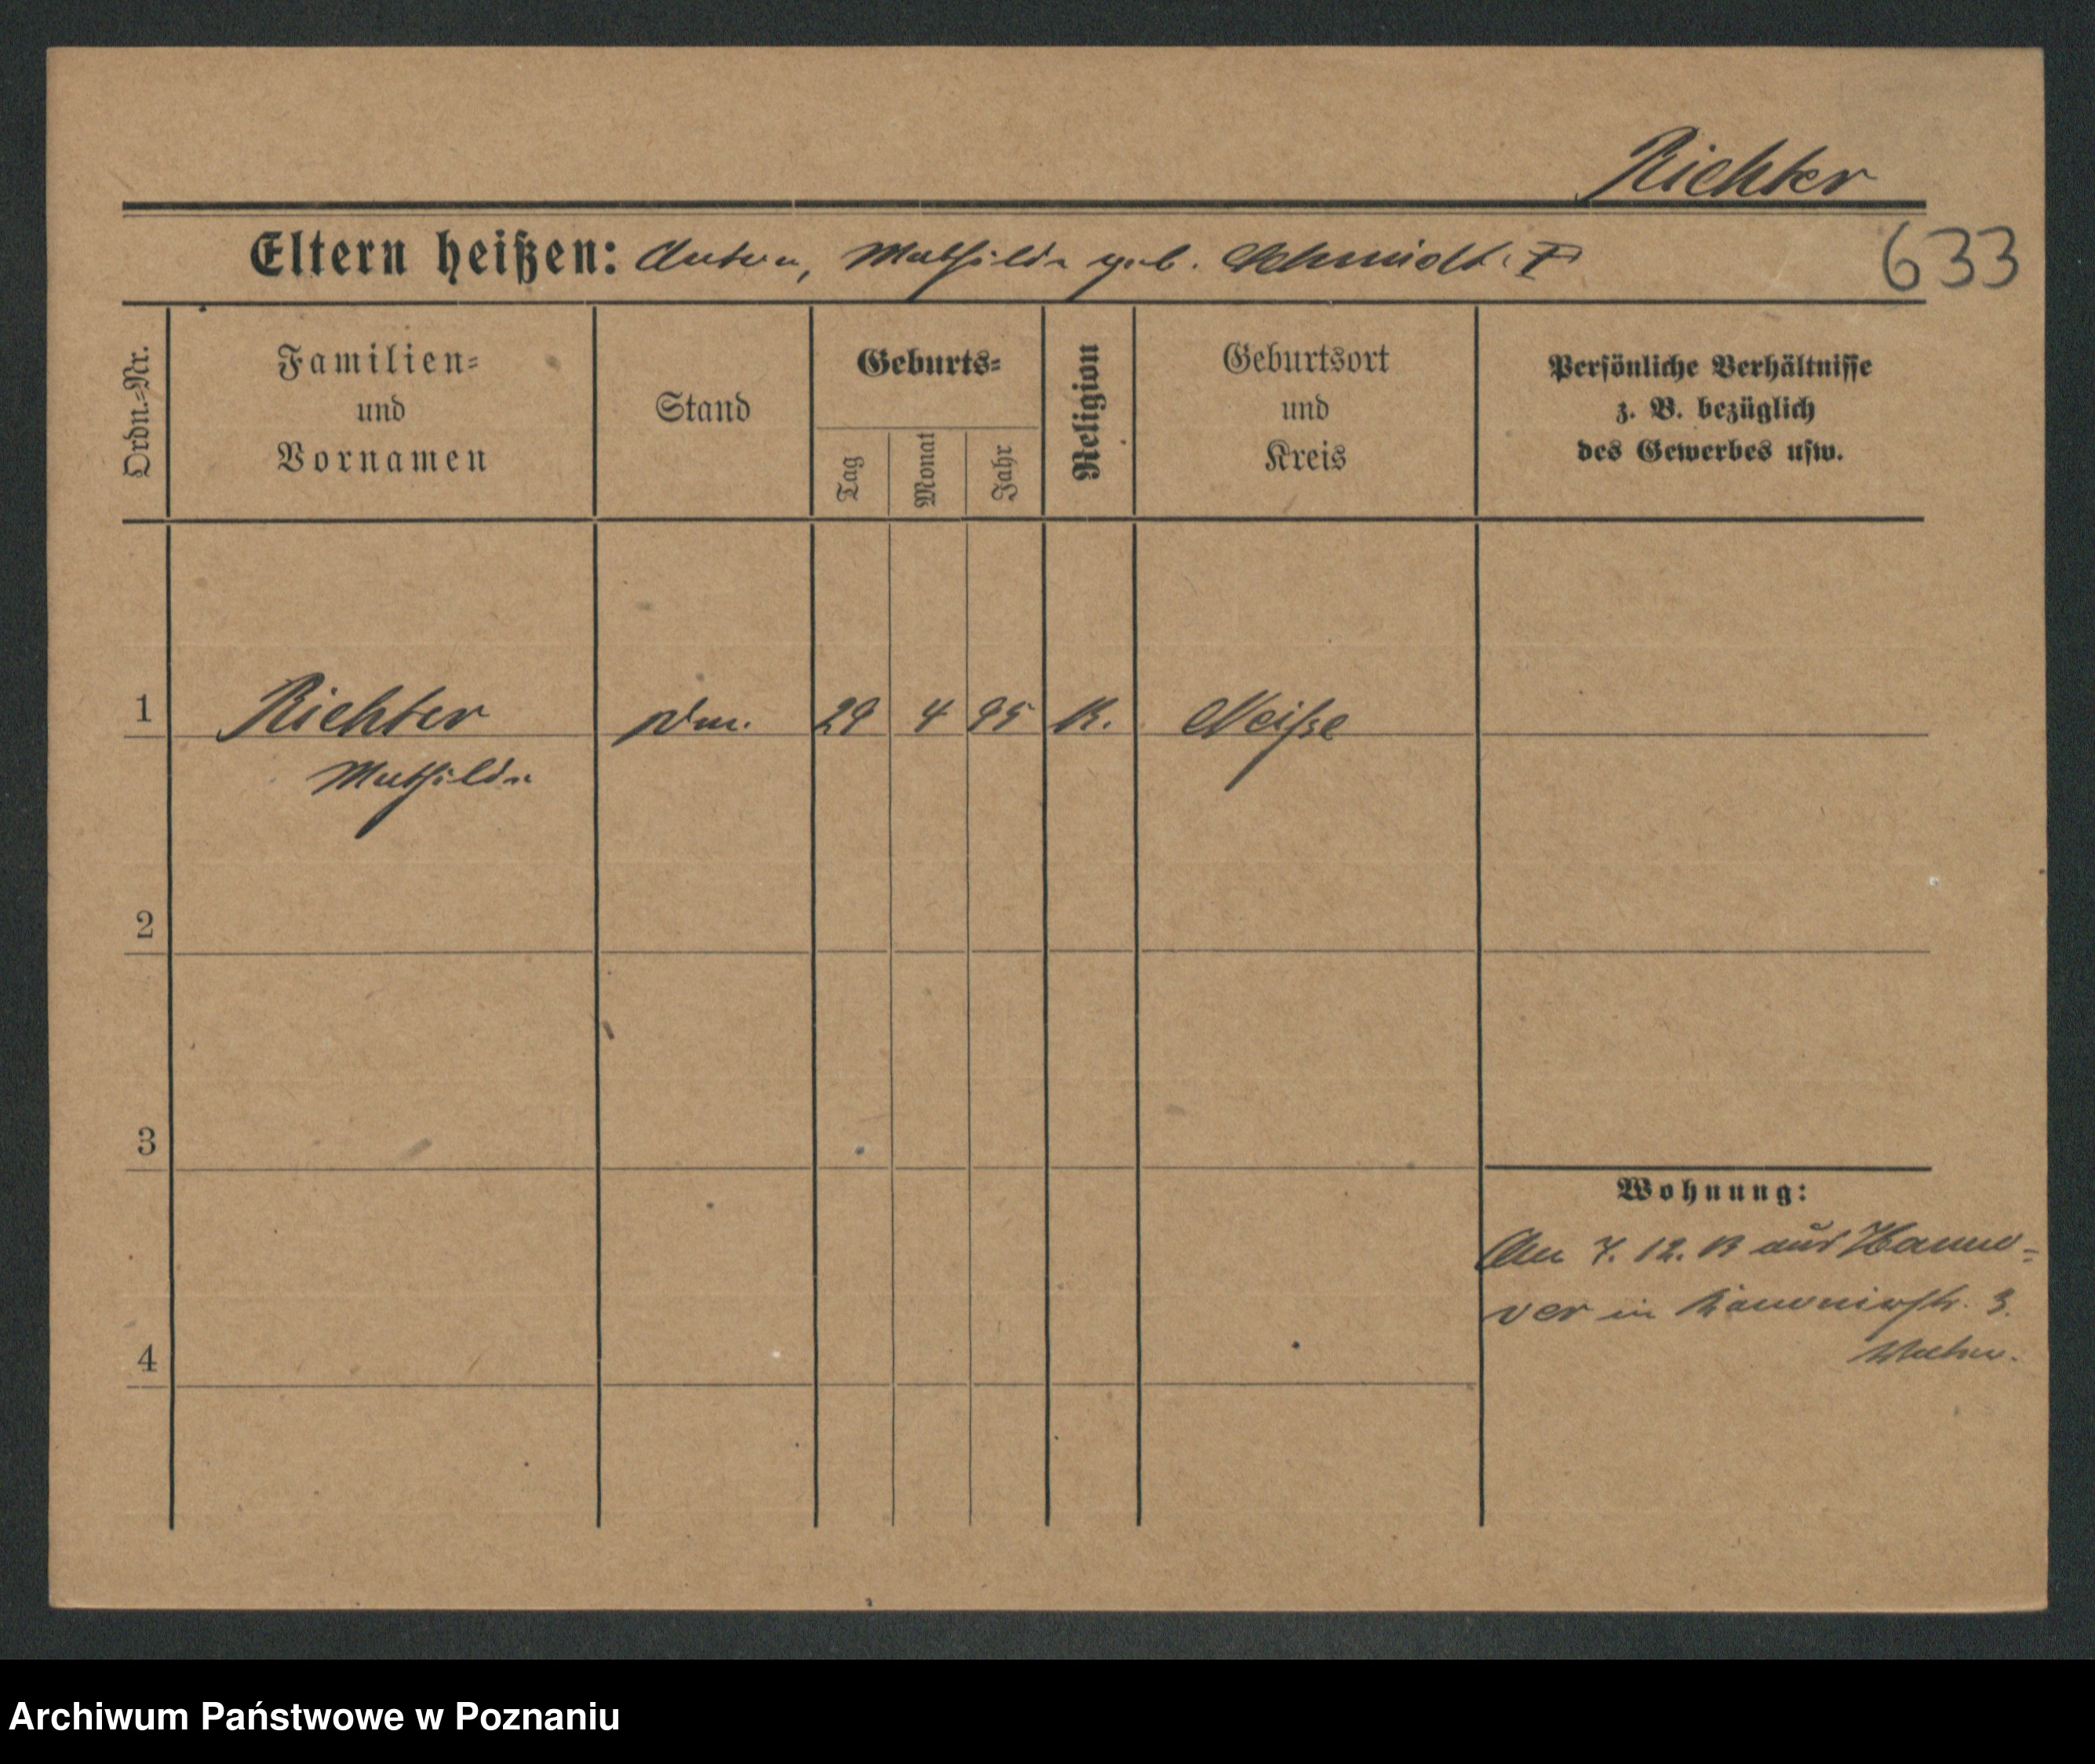 Richter
Eltern heißen: Anton, Mathilde geb. Schmidt.
633
Ordn.-Nr.
Familien-
und
Vornamen
Stand
Geburts-
Tag
Monat
Jahr
Religion
Geburtsort
und
Kreis
Persönliche Verhältnisse
z. B. bezüglich
des Gewerbes usw.
1 Richter 29 4 95 K. Neisse
Mathilde
2
3
Wohnung:
7. 12. 13 aus Hanno-
ver in Kanonierstr. 3.
4
Archiwum Państwowe w Poznaniu